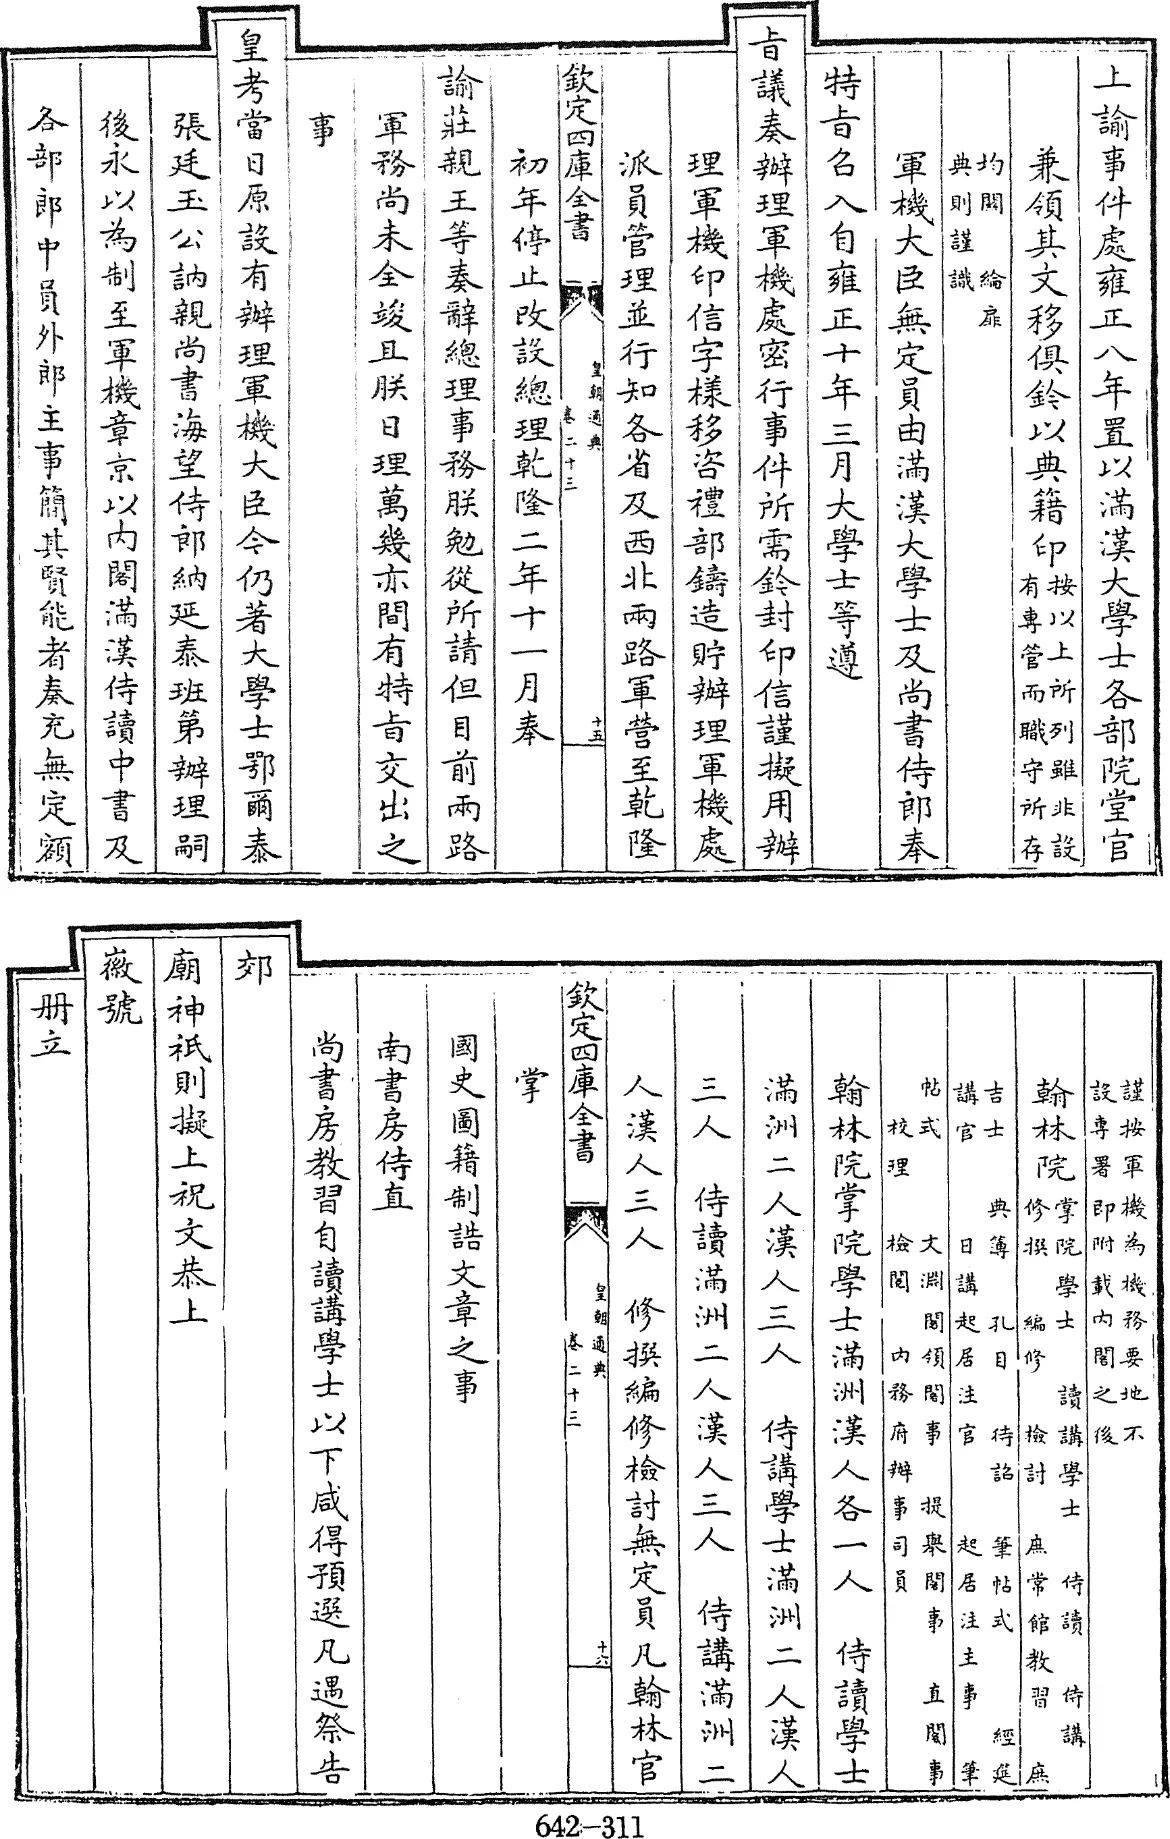 上諭事件處雍正八年置以滿漢大學士各部院堂官
兼領其文移俱鈐以典籍印
按以上所列雖非設
有專管而職守所存
均關 綸扉
典則謹識
軍機大臣無定員由滿漢大學士及尚書侍郎奉
特旨召入自雍正十年三月大學士等遵
旨議奏辦理軍機處密行事件所需鈐封印信謹擬用辦
理軍機印信字樣移咨禮部鑄造貯辦理軍機處
派員管理並行知各省及西北兩路軍營至乾隆
欽定四庫全書
皇朝通典
卷二十三
十五
初年停止改設總理乾隆二年十一月奉
諭莊親王等奏辭總理事務朕勉從所請但目前兩路
軍務尚未全竣且朕日理萬幾亦間有特旨交出之
事
皇考當日原設有辦理軍機大臣今仍著大學士鄂爾泰
張廷玉公訥親尚書海望侍郎納延泰班第辦理嗣
後永以為制至軍機章京以內閣滿漢侍讀中書及
各部郎中員外郎主事簡其賢能者奏充無定額
謹按軍機為機務要地不
設專署即附載內閣之後
翰林院
掌院學士 讀講學士 侍讀 侍講
修撰 編修 檢討 庶常館教習 庶
吉士 典簿 孔目 待詔 筆帖式 經筵
講官 日講起居注官 起居注主事 筆
帖式 文淵閣領閣事 提舉閣事 直閣事
校理 檢閱 內務府辦事司員
翰林院掌院學士滿洲漢人各一人 侍讀學士
滿洲二人漢人三人 侍講學士滿洲二人漢人
三人 侍讀滿洲二人漢人三人 侍講滿洲二
人漢人三人 修撰編修檢討無定員凡翰林官
欽定四庫全書
皇朝通典
卷二十三
十六
掌
國史圖籍制誥文章之事
南書房侍直
尚書房教習自讀講學士以下咸得預選凡遇祭告
郊
廟神祇則擬上祝文恭上
徽號
冊立
642-311